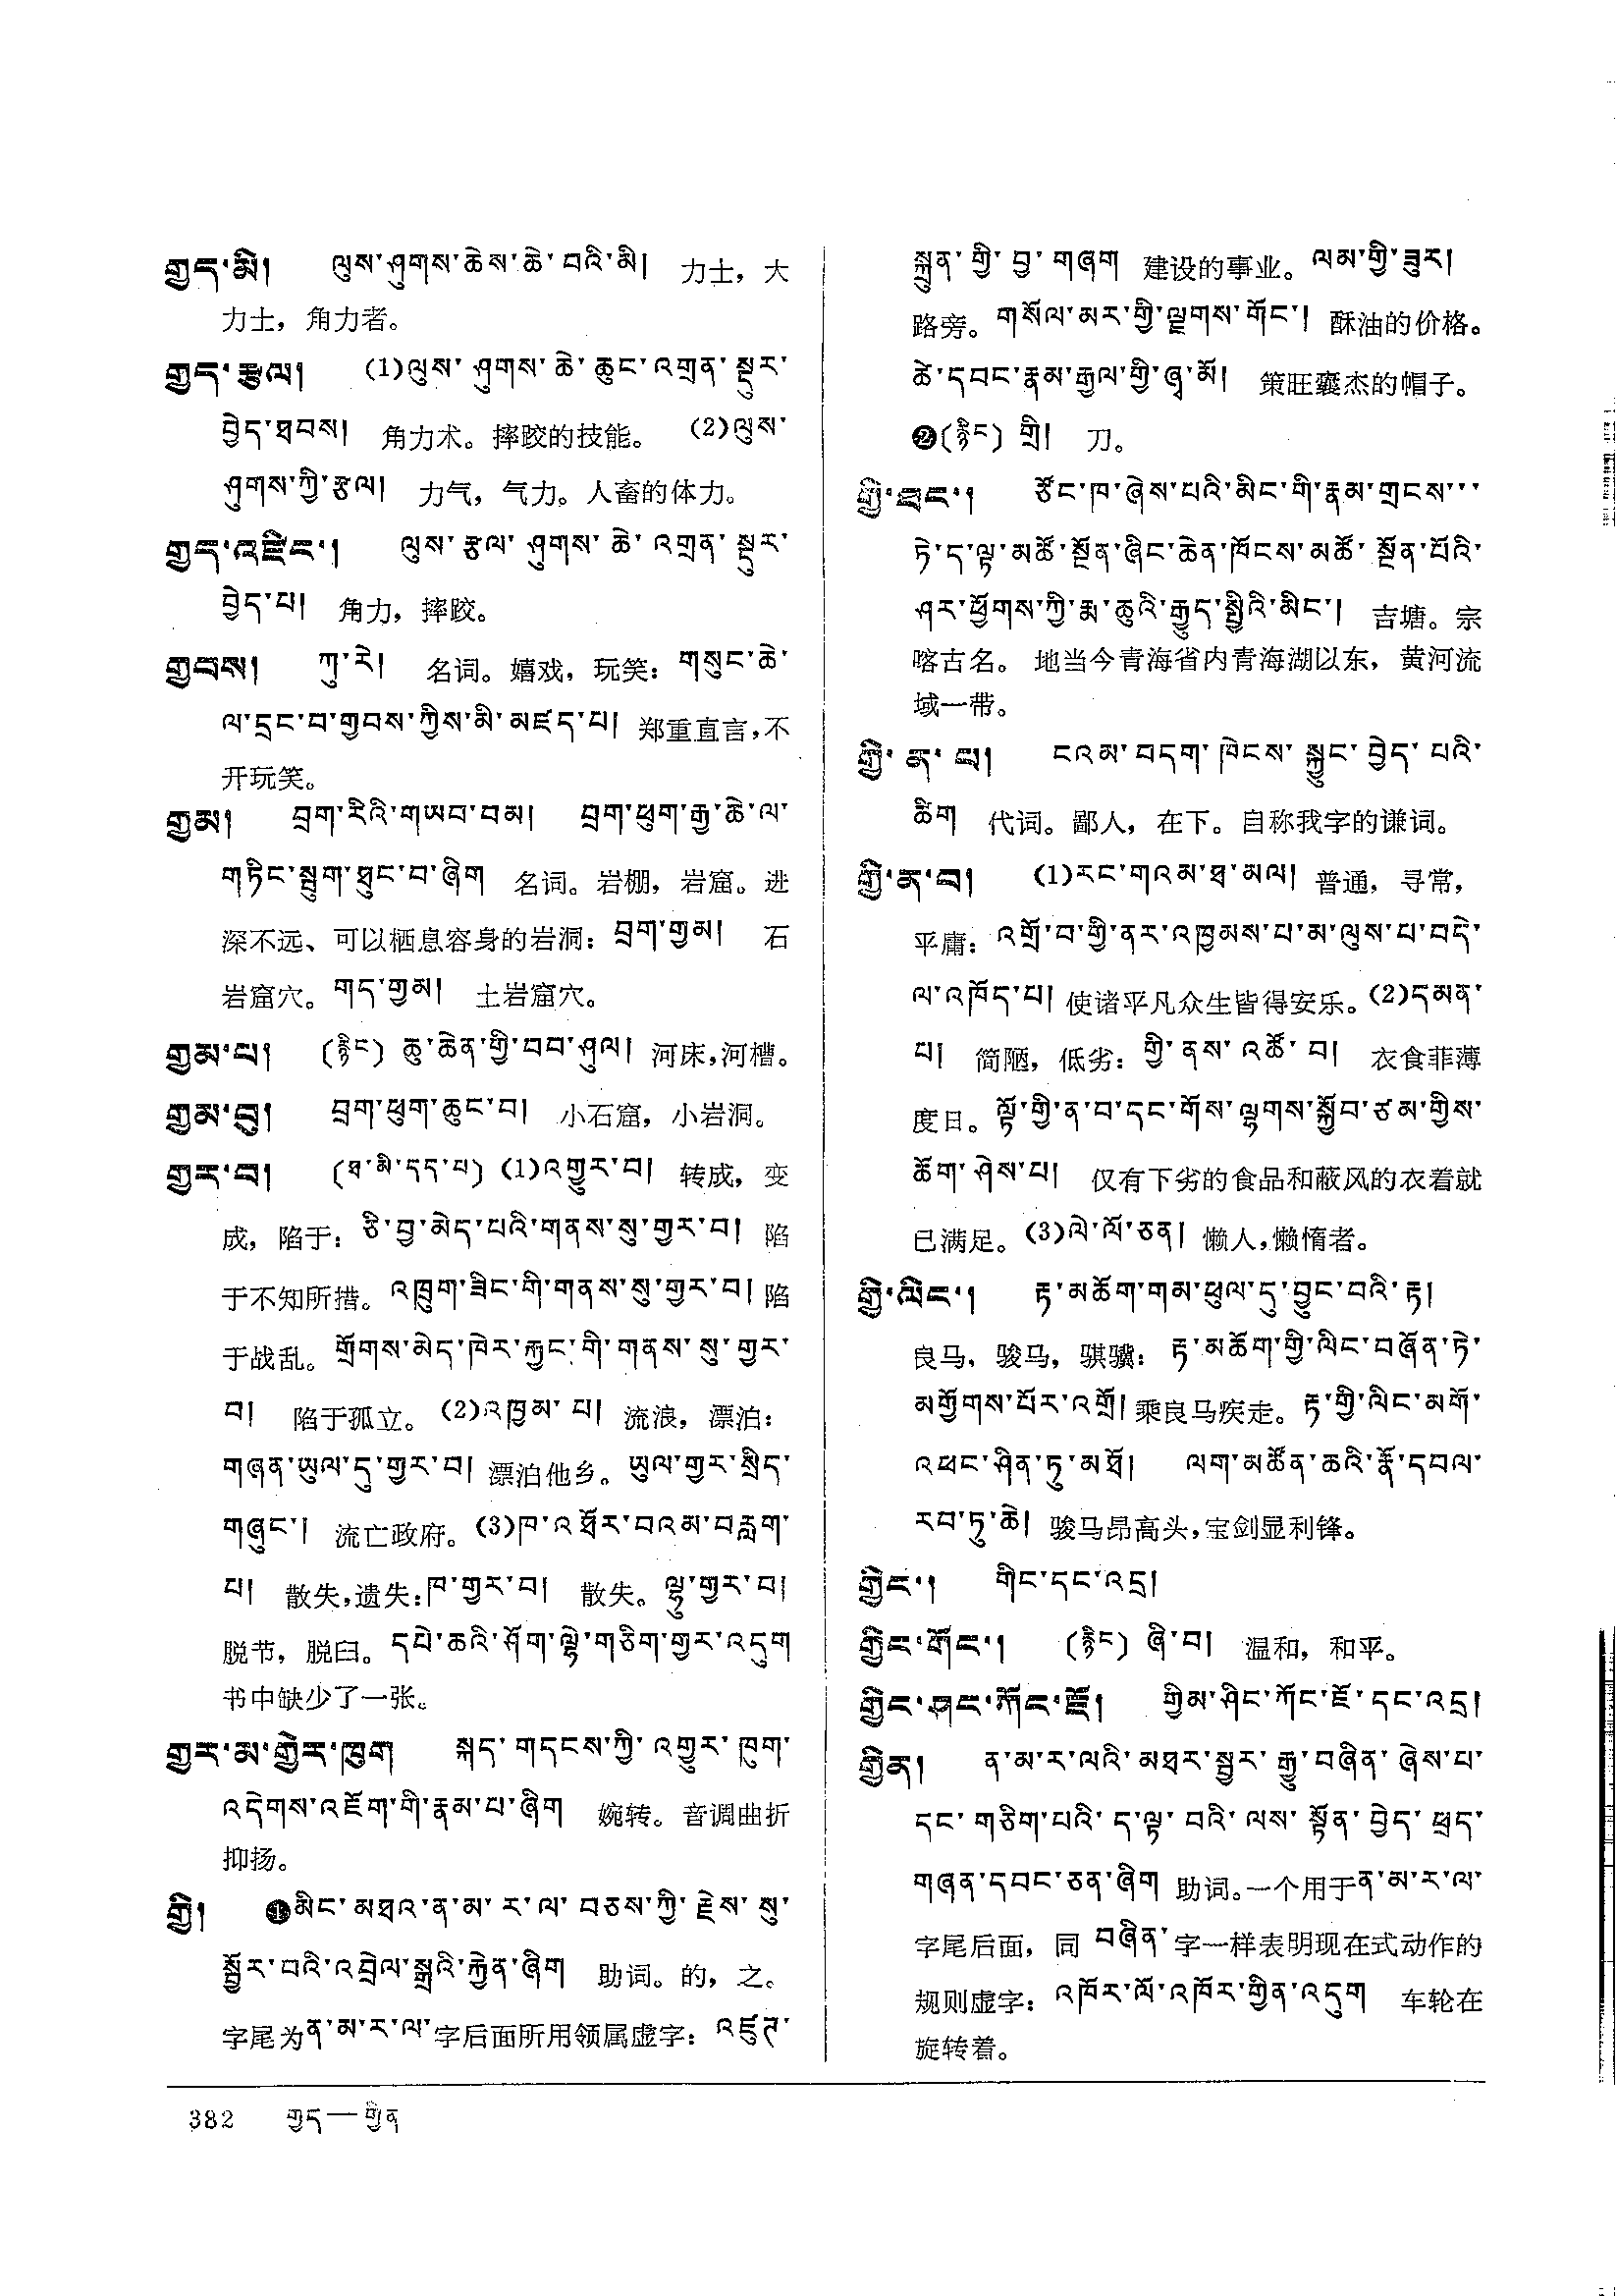 གྱད་མི། ལུས་ཤུགས་ཆེས་ཆེ་བའི་མི། 力士，大
力士，角力者。
གྱད་རྩལ། (1)ལུས་ཤུགས་ཆེ་ཆུང་འགྲན་སྡུར་
བྱེད་ཐབས། 角力术。摔跤的技能。 (2)ལུས་
ཤུགས་ཀྱི་རྩལ། 力气，气力。人畜的体力。
གྱད་འཛིང་། ལུས་རྩལ་ཤུགས་ཆེ་འགྲན་སྡུར་
བྱེད་པ། 角力，摔跤。
གྱབས། ཀུ་རེ། 名词。嬉戏，玩笑：གསུང་ཆེ་
ལ་དྲང་བ་གྱབས་ཀྱིས་མི་མཛད་པ། 郑重直言,不
开玩笑。
གྱམ། བྲག་རིའི་གཡབ་བམ། བྲག་ཕུག་རྒྱ་ཆེ་ལ་
གཏིང་སྦུག་ཐུང་བ་ཞིག 名词。岩棚，岩窟。进
深不远、可以栖息容身的岩洞：བྲག་གྱམ། 石
岩窟穴。གད་གྱམ། 土岩窟穴。
གྱམ་པ། (རྙིང) ཆུ་ཆེན་གྱི་བབ་ཤུལ། 河床,河槽。
གྱམ་བུ། བྲག་ཕུག་ཆུང་བ། 小石窟，小岩洞。
གྱར་བ། (ཐ་མི་དད་པ) (1)འགྱུར་བ། 转成，变
成，陷于：ཅི་བྱ་མེད་པའི་གནས་སུ་གྱར་བ། 陷
于不知所措。འཁྲུག་ཟིང་གི་གནས་སུ་གྱར་བ། 陷
于战乱。གྲོགས་མེད་ཁེར་རྐྱང་གི་གནས་སུ་གྱར་
བ། 陷于孤立。(2)འཁྱམ་པ། 流浪，漂泊：
གཞན་ཡུལ་དུ་གྱར་བ། 漂泊他乡。ཡུལ་གྱར་སྲིད་
གཞུང་། 流亡政府。(3)ཁ་འཐོར་བའམ་བརླག་
པ། 散失,遗失:ཁ་གྱར་བ། 散失。ལྷུ་གྱར་བ།
脱节，脱臼。དཔེ་ཆའི་ཤོག་ལྷེ་གཅིག་གྱར་འདུག
书中缺少了一张。
གྱར་མ་གྱེར་ཁུག སྐད་གདངས་ཀྱི་འགྱུར་ཁུག་
འདེགས་འཇོག་གི་རྣམ་པ་ཞིག 婉转。音调曲折
抑扬。
གྱི། ❶མིང་མཐའ་ན་མ་ར་ལ་བཅས་ཀྱི་རྗེས་སུ་
སྦྱོར་བའི་འབྲེལ་སྒྲའི་རྐྱེན་ཞིག 助词。的，之。
字尾为ན་མ་ར་ལ་字后面所用领属虚字：འཛུཊ་
སྐྲུན་གྱི་བྱ་གཞག 建设的事业。ལམ་གྱི་ཟུར།
路旁。གསོལ་མར་གྱི་ལྗགས་གོང་། 酥油的价格。
ཚེ་དབང་རྣམ་རྒྱལ་གྱི་ཞྭ་མོ། 策旺囊杰的帽子。
❷(རྙིང) གྲི། 刀。
གྱི་ཐང་། ཙོང་ཁ་ཞེས་པའི་མིང་གི་རྣམ་གྲངས་་་
ཏེ་ད་ལྟ་མཚོ་སྔོན་ཞིང་ཆེན་ཁོངས་མཚོ་སྔོན་པོའི་
ཤར་ཕྱོགས་ཀྱི་རྨ་ཆུའི་རྒྱུད་སྤྱིའི་མིང་། 吉塘。宗
喀古名。 地当今青海省内青海湖以东，黄河流
域一带。
གྱི་ན་པ། ངའམ་བདག་ཁེངས་སྐྱུང་བྱེད་པའི་
ཚིག 代词。鄙人，在下。自称我字的谦词。
གྱི་ན་བ། (1)རང་གའམ་ཐ་མལ། 普通，寻常，
平庸：འགྲོ་བ་གྱི་ནར་འཁྱམས་པ་མ་ལུས་པ་བདེ་
ལ་འཁོད་པ། 使诸平凡众生皆得安乐。(2)དམན་
པ། 简陋，低劣：གྱི་ནས་འཚོ་བ། 衣食菲薄
度日。ལྟོ་གྱི་ན་བ་དང་གོས་ལྷགས་སྐྱོབ་ཙམ་གྱིས་
ཆོག་ཤེས་པ། 仅有下劣的食品和蔽风的衣着就
已满足。(3)ལེ་ལོ་ཅན། 懒人,懒惰者。
གྱི་ལིང་། རྟ་མཆོག་གམ་ཕུལ་དུ་བྱུང་བའི་རྟ།
良马，骏马，骐骥：རྟ་མཆོག་གྱི་ལིང་བཞོན་ཏེ་
མགྱོགས་པོར་འགྲོ། 乘良马疾走。རྟ་གྱི་ལིང་མགོ་
འཕང་ཤིན་ཏུ་མཐོ། ལག་མཚོན་ཆའི་རྣོ་དབལ་
རབ་ཏུ་ཆེ། 骏马昂高头,宝剑显利锋。
གྱིང་། གིང་དང་འདྲ།
གྱིང་གོང་། (རྙིང) ཞི་བ། 温和，和平。
གྱིང་ཤང་ཀོང་ཇོ། གྱིམ་ཤིང་ཀོང་ཇོ་དང་འདྲ།
གྱིན། ན་མ་ར་ལའི་མཐར་སྦྱར་རྒྱུ་བཞིན་ཞེས་པ་
དང་གཅིག་པའི་ད་ལྟ་བའི་ལས་སྟོན་བྱེད་ཕྲད་
གཞན་དབང་ཅན་ཞིག 助词。一个用于ན་མ་ར་ལ་
字尾后面，同 བཞིན་字一样表明现在式动作的
规则虚字：འཁོར་ལོ་འཁོར་གྱིན་འདུག 车轮在
旋转着。
382 གྱད—གྱིན